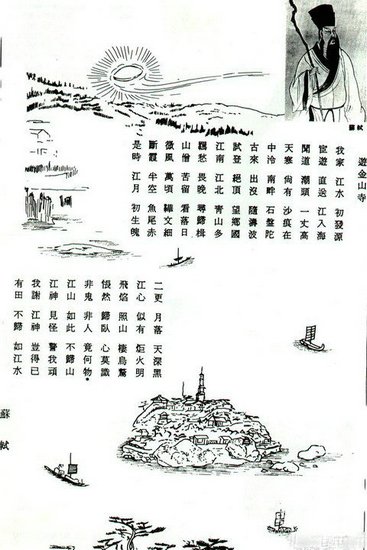 蘇軾
遊金山寺
我家 江水 初發源
宦遊 直送 江入海
聞道 潮頭 一丈高
天寒 尚有 沙痕在
中泠 南畔 石盤陀
古來 出沒 隨濤波
試登 絕頂 望鄉國
江南 江北 青山多
羈愁 畏晚 尋歸楫
山僧 苦留 看落日
微風 萬頃 鞾文細
斷霞 半空 魚尾赤
是時 江月 初生魄
二更 月落 天深黑
江心 似有 炬火明
飛焰 照山 棲烏驚
悵然 歸臥 心莫識
非鬼 非人 竟何物。
江山 如此 不歸山
江神 見怪 警我頑
我謝 江神 豈得已
有田 不歸 如江水
蘇 軾